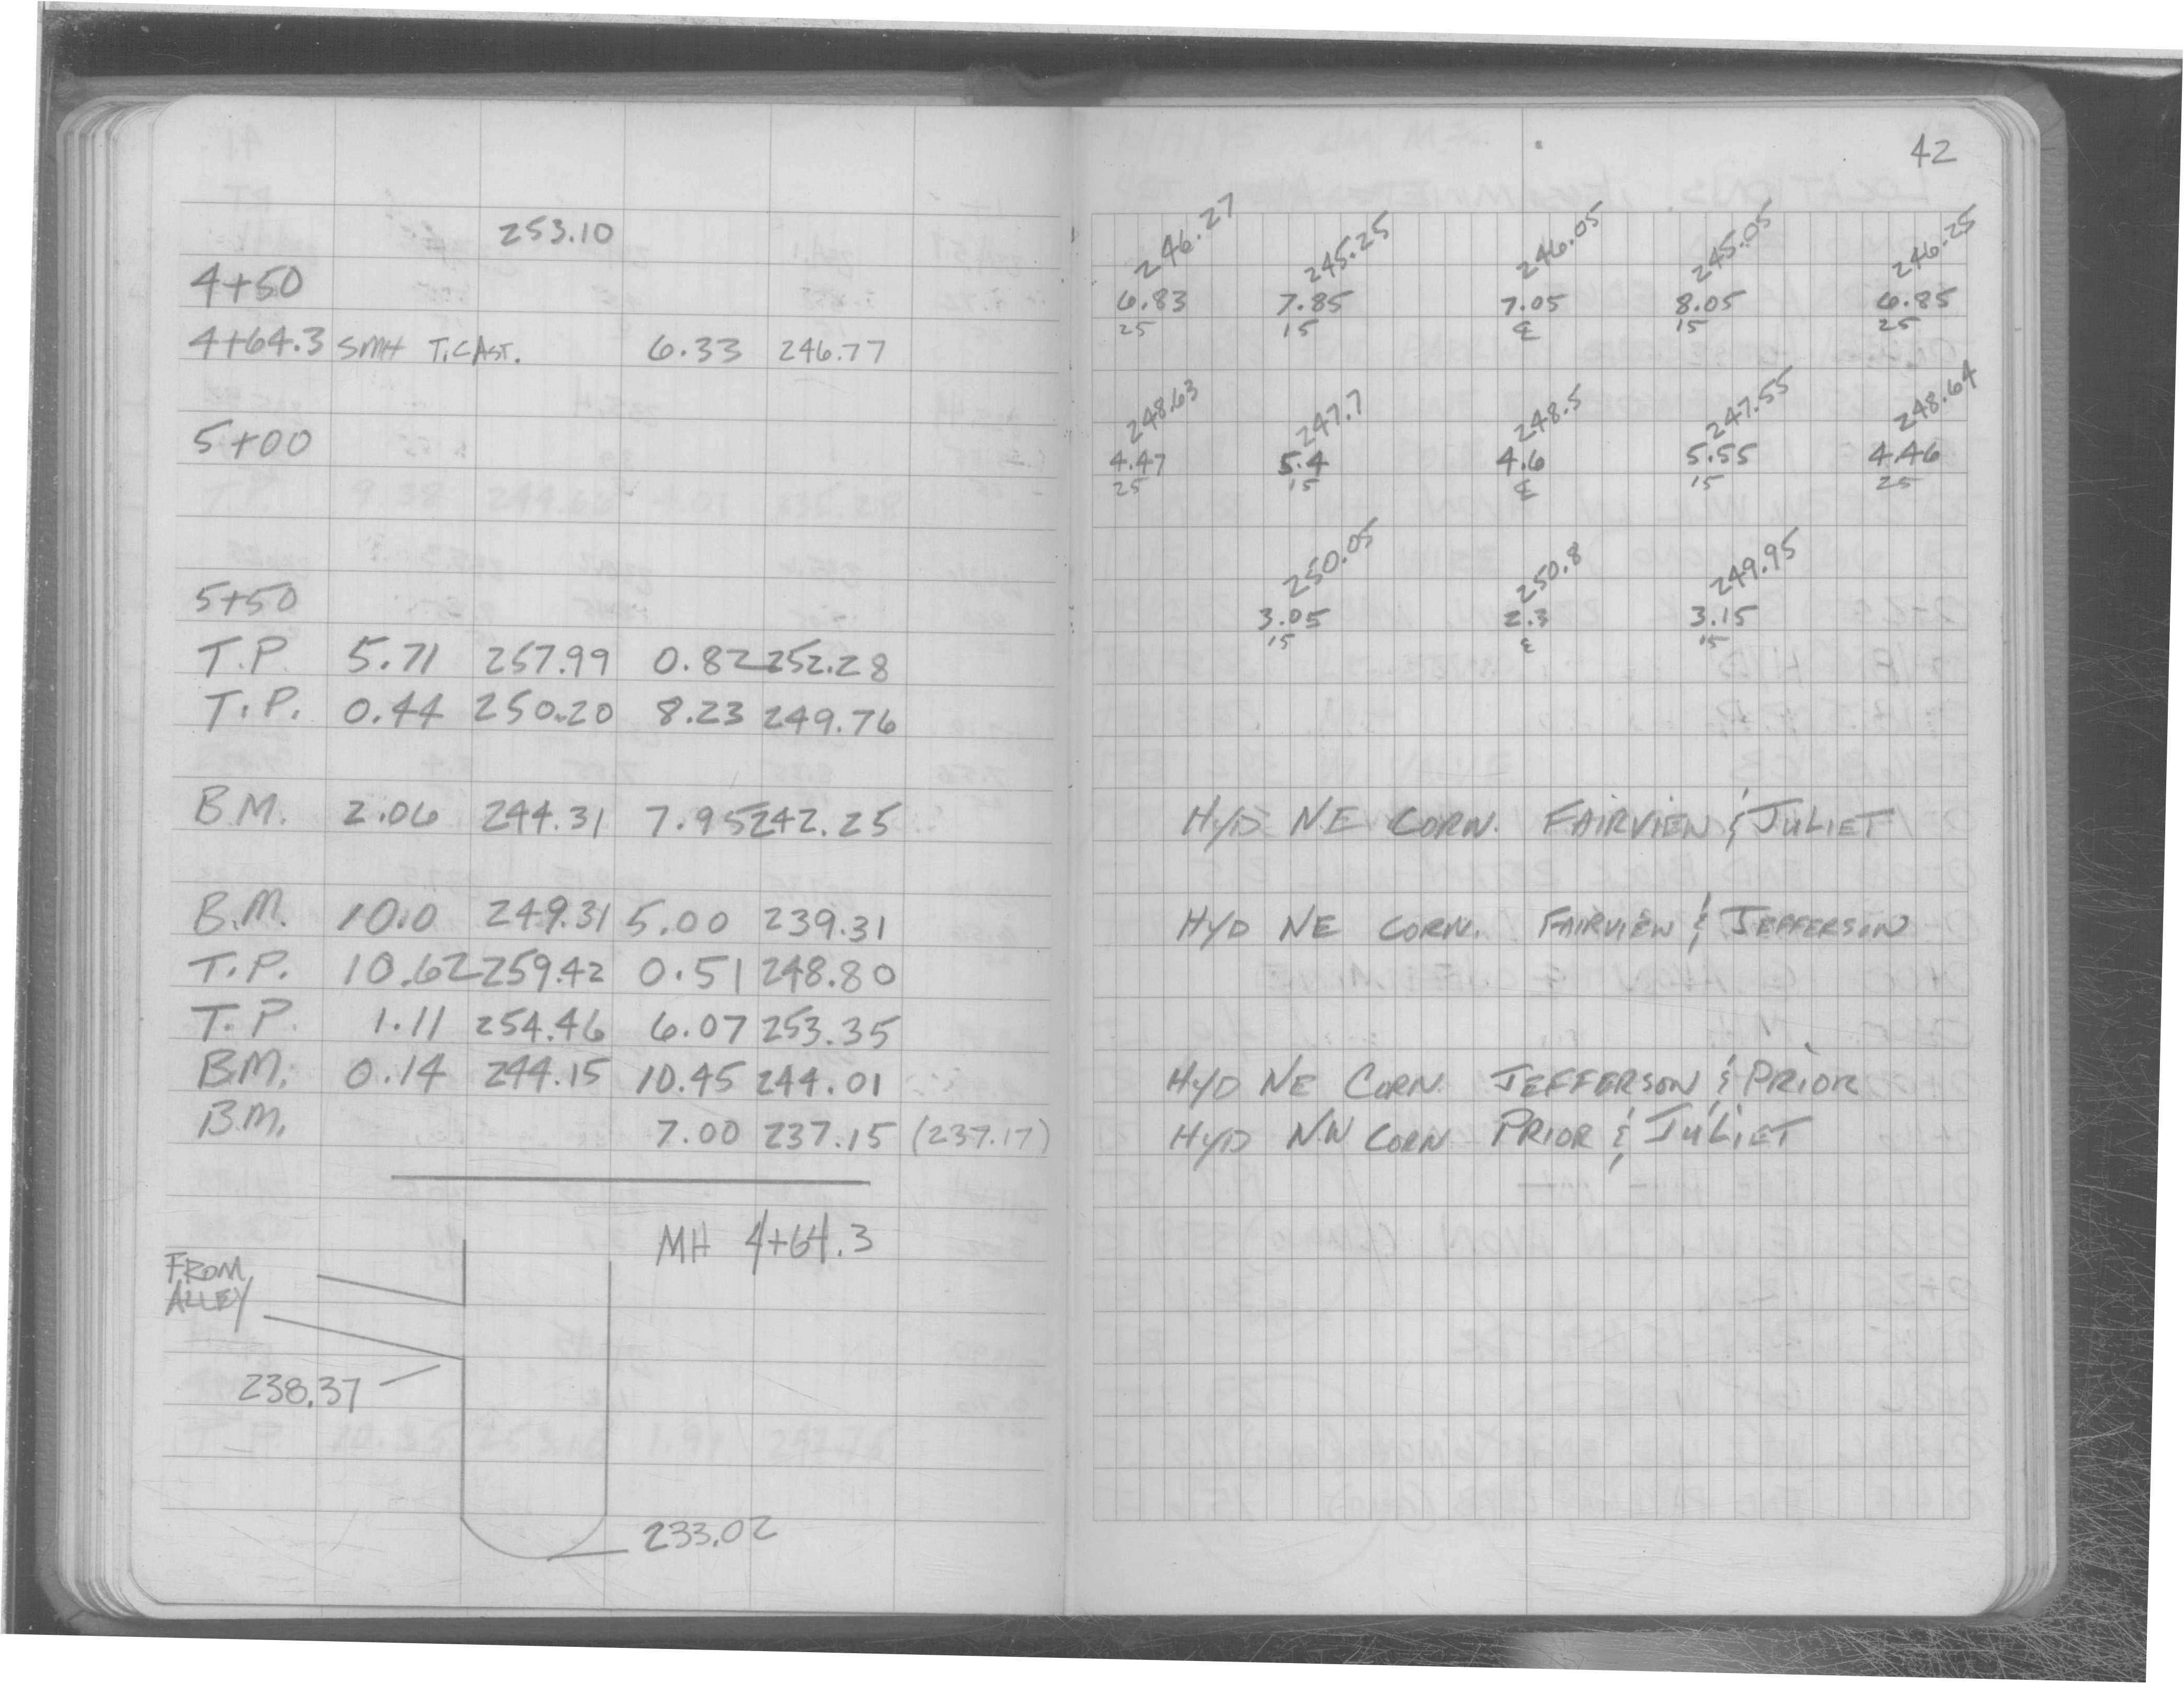 253.10
4+50
4+64.3 SMH T.CAST. 6.33 246.77
5+00
5+50
T.P. 5.71 257.99 0.82 252.28
T.P. 0.44 250.20 8.23 249.76
B.M. 2.06 244.31 7.95 242.25
B.M. 10.0 249.31 5.00 239.31
T.P. 10.62 259.42 0.51 248.80
T.P. 1.11 254.46 6.07 253.35
B.M. 0.14 244.15 10.45 244.01
B.M. 7.00 237.15 (237.17)
MH 4+64.3
FROM
ALLEY
238.37
233.02
42
246.27 245.25 246.05 245.05 246.25
6.83 7.85 7.05 8.05 6.85
25 15 ℄ 15 25
248.63 247.7 248.5 247.55 248.64
4.47 5.4 4.6 5.55 4.46
25 15 ℄ 15 25
250.05 250.8 249.95
3.05 2.3 3.15
15 ℄ 15
HYD NE CORN. FAIRVIEW & JULIET
HYD NE CORN. FAIRVIEW & JEFFERSON
HYD NE CORN. JEFFERSON & PRIOR
HYD NW CORN PRIOR & JULIET